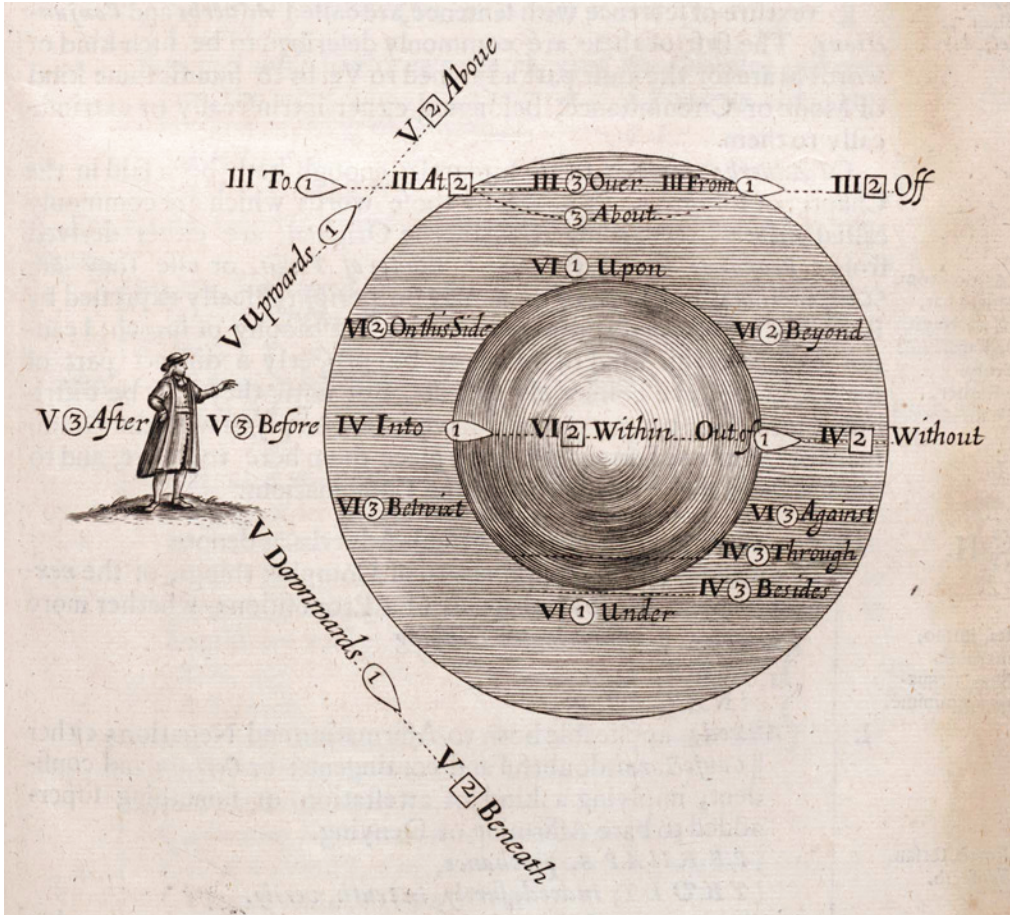 V 2 Aboue
III To 1 III At 2 III 3 Over III From 1 III 2 Off
3 About
V Upwards 1
VI 1 Upon
VI 2 On this Side VI 2 Beyond
V 3 After V 3 Before IV Into 1 VI 2 Within Out of 1 IV 2 Without
VI 3 Betwixt VI 3 Against
IV 3 Through
IV 3 Besides
VI 1 Under
V Downwards 1
V 2 Beneath